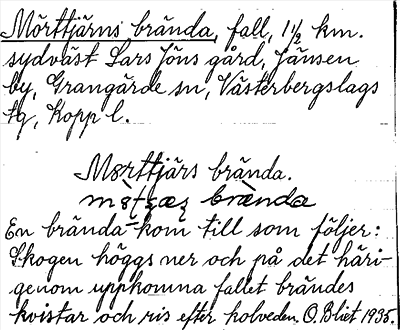 Mörttjärns brända, fall, 1 1/2 km.
sydväst Lars Jöns gård, Jänsen
by, Grangärde sn, Västerbergslags
tg, Kopp l.
Mörttjärs brända.
brända
En brända kom till som följer:
Skogen höggs ner och på det häri-
genom uppkomna fallet brändes
kvistar och ris efter kolveden. O. Bliet 1935.